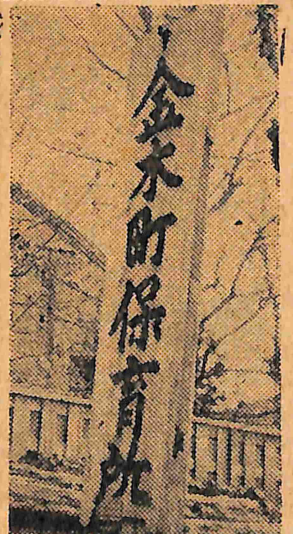 金木町保育所